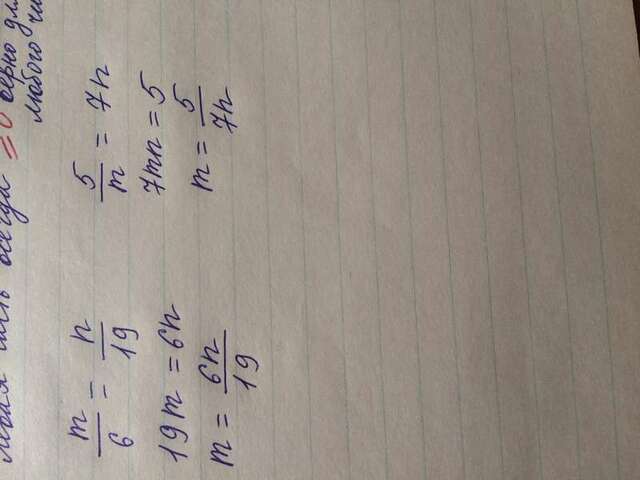 левая часть всегда = 0 верно для
любого чи
m/6 = n/19
19m = 6n
m = 6n/19
5/m = 7n
7mn = 5
m = 5/7n